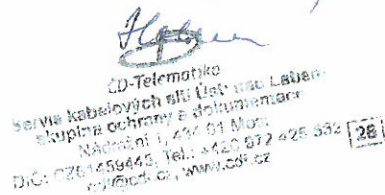 ČD-Telematika
Servis kabelových sítí Ústí nad Labem
skupina ochrany a dokumentace
Nádražní 1, 434 01 Most
DIČ: CZ61459445, Tel.: +420 972 425 332 28
www.cdt.cz